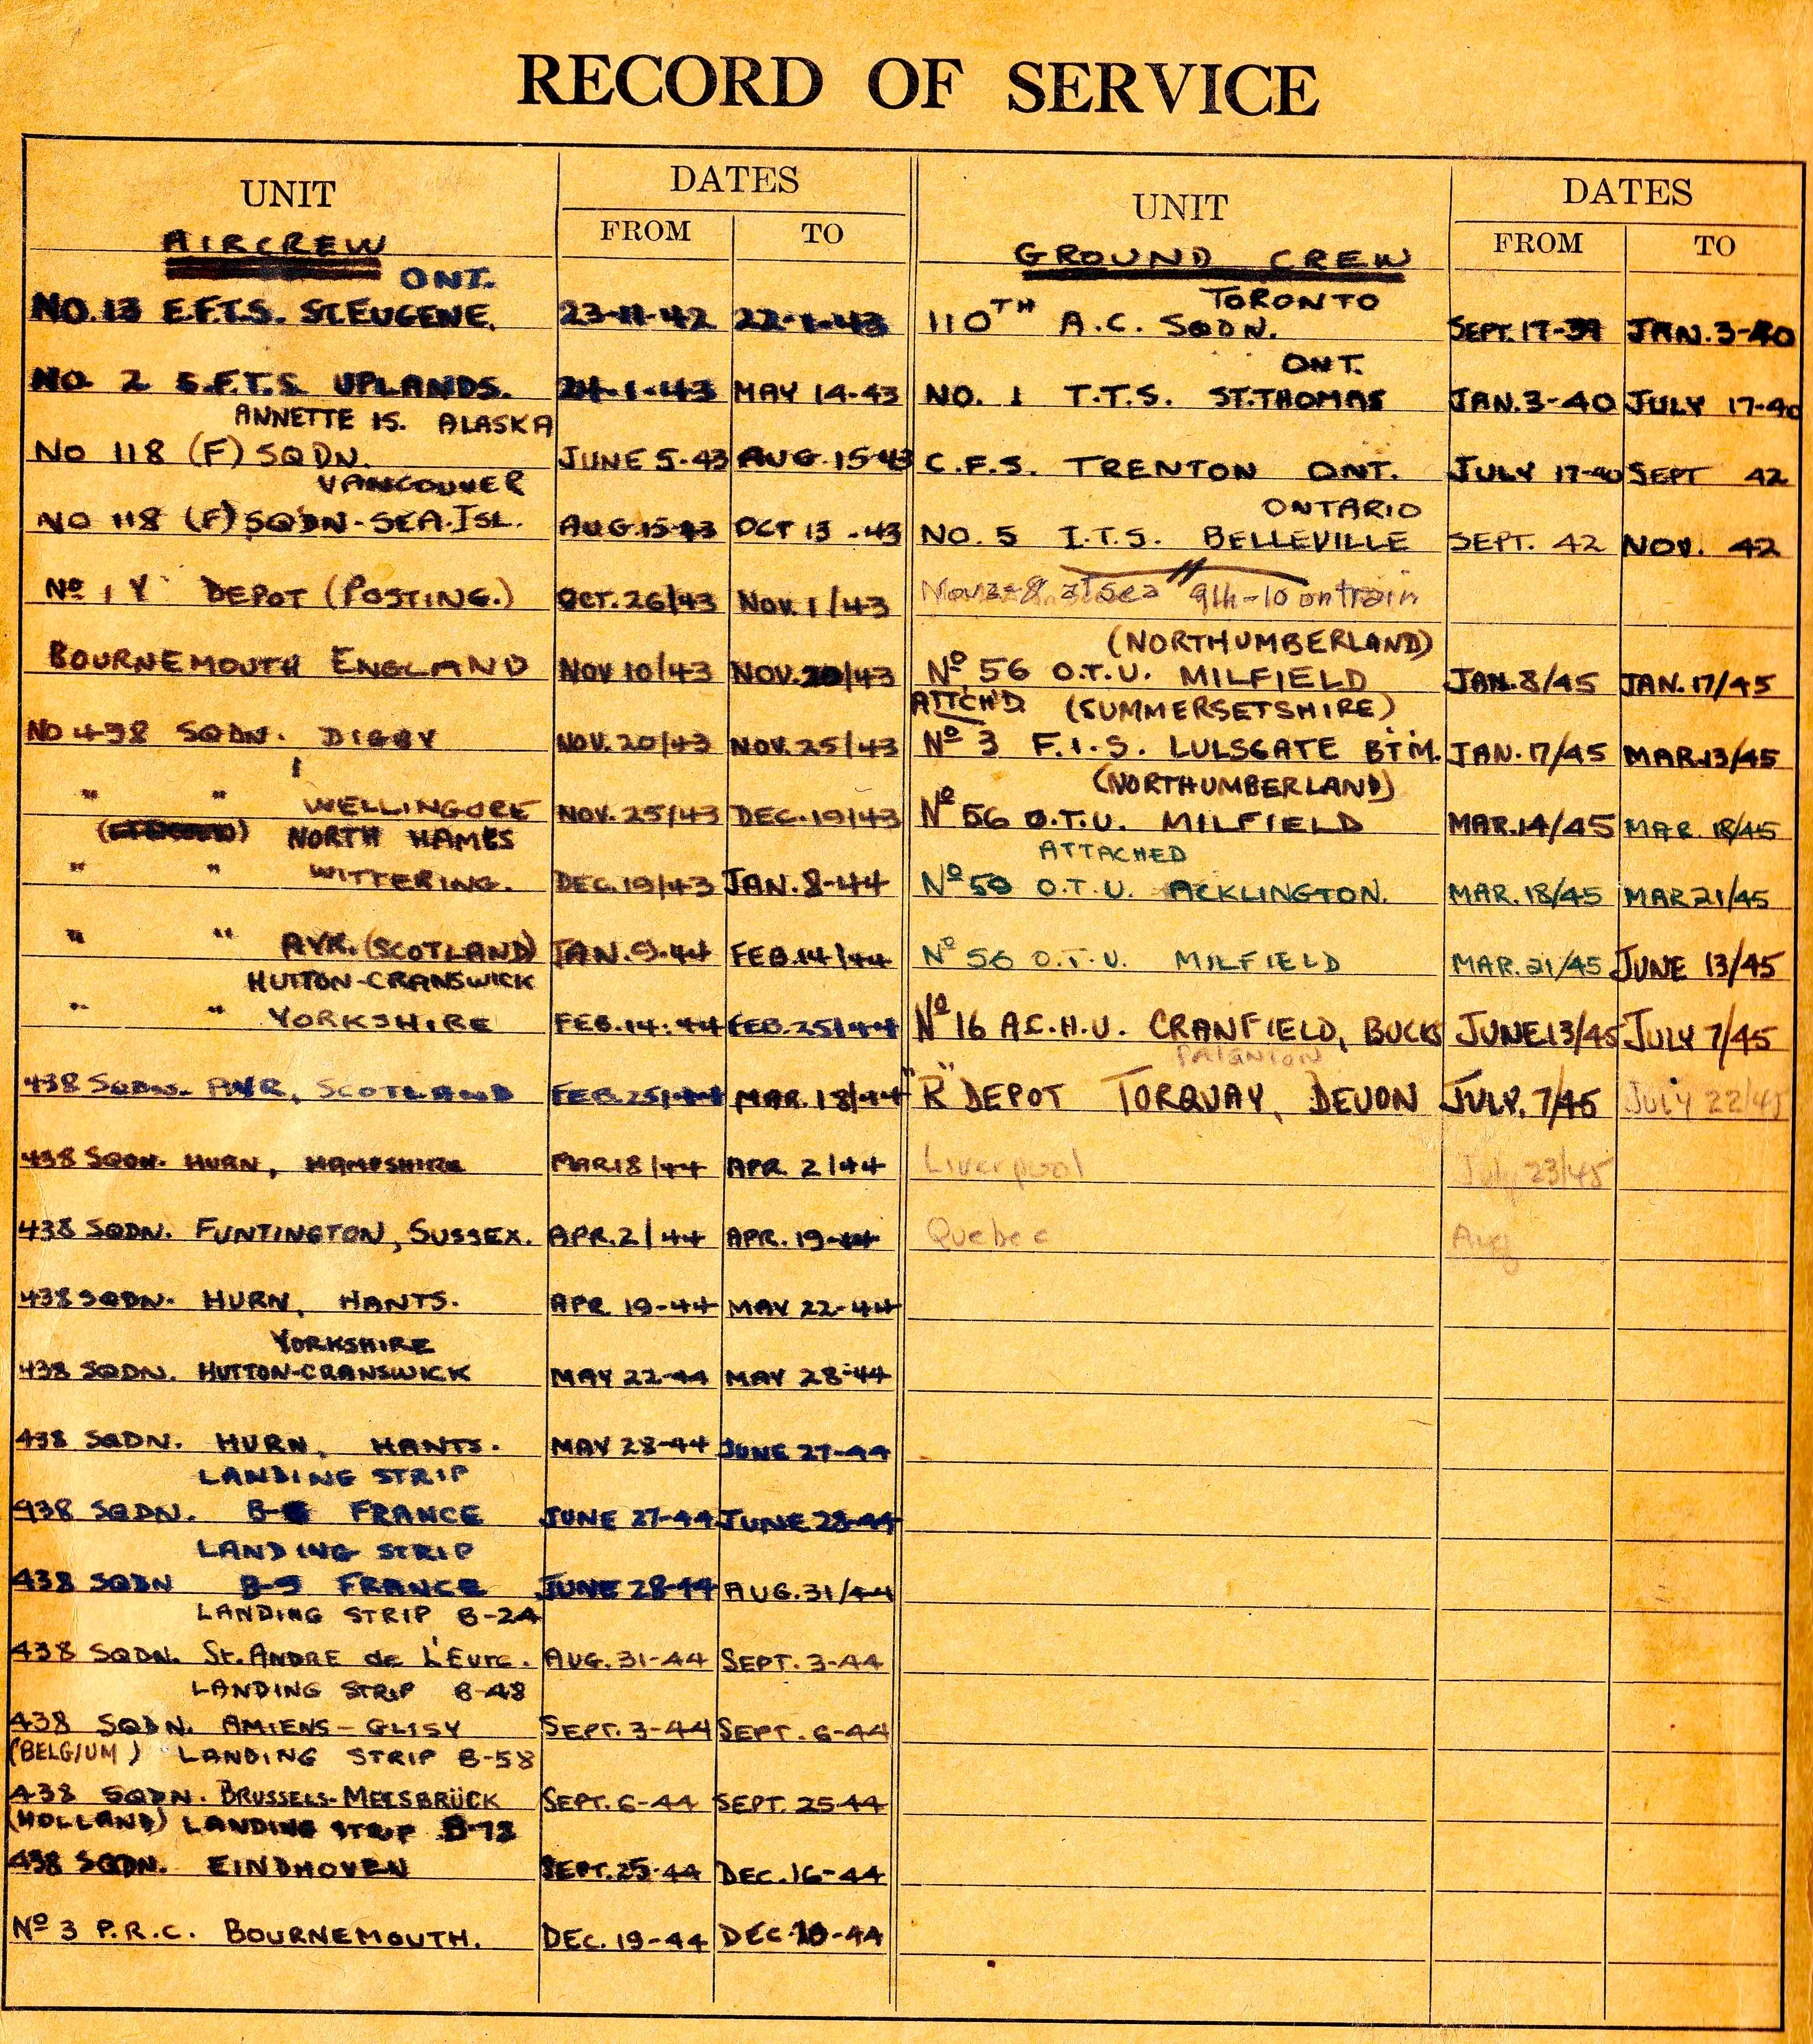 RECORD OF SERVICE
UNIT
DATES
FROM TO
AIRCREW
ONT.
NO. 13 E.F.T.S. ST. EUGENE. 23-11-42 22-1-43
NO 2 S.F.T.S. UPLANDS. 24-1-43 MAY 14-43
ANNETTE IS. ALASKA
NO 118 (F) SQDN. JUNE 5-43 AUG. 15-43
VANCOUVER
NO 118 (F) SQDN-SEA.ISL. AUG. 15-43 OCT 13-43
Nº 1 Y DEPOT (POSTING.) OCT. 26/43 NOV. 1/43
BOURNEMOUTH ENGLAND NOV 10/43 NOV. 20/43
NO 438 SQDN. DIGBY NOV. 20/43 NOV. 25/43
" " WELLINGORE NOV. 25/43 DEC. 19/43
NORTH HAMES
" " WITTERING. DEC. 19/43 JAN. 8-44
" " AYR. (SCOTLAND) JAN. 9-44 FEB. 14/44
HUTTON-CRANSWICK
" " YORKSHIRE FEB. 14-44 FEB. 25/44
438 SQDN. AYR, SCOTLAND FEB. 25/44 MAR. 18/44
438 SQDN. HURN, HAMPSHIRE MAR 18/44 APR. 2/44
438 SQDN. FUNTINGTON, SUSSEX. APR. 2/44 APR. 19-44
438 SQDN. HURN, HANTS. APR 19-44 MAY 22-44
YORKSHIRE
438 SQDN. HUTTON-CRANSWICK MAY 22-44 MAY 28-44
438 SQDN. HURN, HANTS. MAY 28-44 JUNE 27-44
LANDING STRIP
438 SQDN. FRANCE JUNE 27-44 JUNE 28-44
LANDING STRIP
438 SQDN B-9 FRANCE JUNE 28-44 AUG. 31/44
LANDING STRIP B-24
438 SQDN. St. ANDRE de L'Eure. AUG. 31-44 SEPT. 3-44
LANDING STRIP B-48
438 SQDN. AMIENS-GLISY SEPT. 3-44 SEPT. 6-44
(BELGIUM) LANDING STRIP B-58
438 SQDN. BRUSSELS-MELSBRÜCK SEPT. 6-44 SEPT. 25-44
(HOLLAND) LANDING STRIP B-78
438 SQDN. EINDHOVEN SEPT. 25-44 DEC. 16-44
Nº 3 P.R.C. BOURNEMOUTH. DEC. 19-44 DEC -44
UNIT
DATES
FROM TO
GROUND CREW
TORONTO
110TH A.C. SQDN. SEPT. 17-39 JAN. 3-40
ONT.
NO. 1 T.T.S. ST. THOMAS JAN. 3-40 JULY 17-40
C.F.S. TRENTON ONT. JULY 17-40 SEPT 42
ONTARIO
NO. 5 I.T.S. BELLEVILLE SEPT. 42 NOV. 42
Nov 2-8 at sea 9th-10 on train
(NORTHUMBERLAND)
Nº 56 O.T.U. MILFIELD JAN. 8/45 JAN. 17/45
ATTCH'D (SUMMERSETSHIRE)
Nº 3 F.I.S. LULSGATE BTM. JAN. 17/45 MAR. 13/45
(NORTHUMBERLAND)
Nº 56 O.T.U. MILFIELD MAR. 14/45 MAR. 18/45
ATTACHED
Nº 59 O.T.U. ACKLINGTON. MAR. 18/45 MAR 21/45
Nº 56 O.T.U. MILFIELD MAR. 21/45 JUNE 13/45
Nº 16 A.C.H.U. CRANFIELD, BUCKS JUNE 13/45 JULY 7/45
PAIGNTON
"R" DEPOT TORQUAY, DEVON JULY. 7/45 July 22/45
Liverpool July 23/45
Quebec Aug